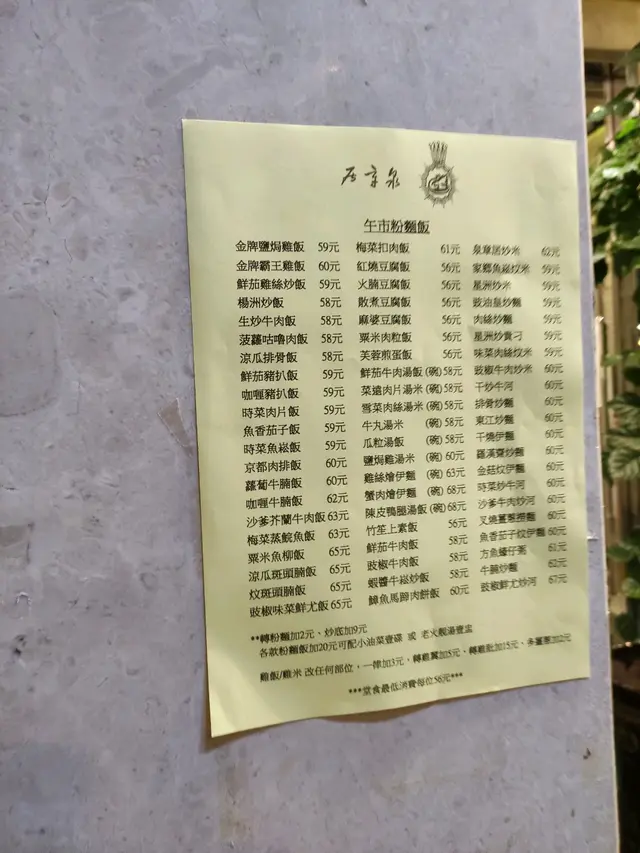 居章泉
午市粉麵飯
金牌鹽焗雞飯 59元
金牌霸王雞飯 60元
鮮茄雞絲炒飯 59元
楊洲炒飯 58元
生炒牛肉飯 58元
菠蘿咕嚕肉飯 58元
涼瓜排骨飯 58元
鮮茄豬扒飯 59元
咖喱豬扒飯 59元
時菜肉片飯 59元
魚香茄子飯 59元
時菜魚崧飯 59元
京都肉排飯 60元
蘿蔔牛腩飯 60元
咖喱牛腩飯 62元
沙爹芥蘭牛肉飯 63元
梅菜蒸鯇魚飯 63元
粟米魚柳飯 65元
涼瓜斑頭腩飯 65元
炆斑頭腩飯 65元
豉椒味菜鮮尤飯 65元
梅菜扣肉飯 61元
紅燒豆腐飯 56元
火腩豆腐飯 56元
散煮豆腐飯 56元
麻婆豆腐飯 56元
粟米肉粒飯 56元
芙蓉煎蛋飯 56元
鮮茄牛肉湯飯 (碗) 58元
菜遠肉片湯米 (碗) 58元
雪菜肉絲湯米 (碗) 58元
牛丸湯米 (碗) 58元
瓜粒湯飯 (碗) 58元
鹽焗雞湯米 (碗) 60元
雞絲燴伊麵 (碗) 63元
蟹肉燴伊麵 (碗) 68元
陳皮鴨腿湯飯 (碗) 68元
竹笙上素飯 56元
鮮茄牛肉飯 58元
豉椒牛肉飯 58元
蝦醬牛崧炒飯 58元
鱆魚馬蹄肉餅飯 60元
泉章居炒米 62元
家鄉魚崧炆米 59元
星洲炒米 59元
豉油皇炒麵 59元
肉絲炒麵 59元
星洲炒貴刁 59元
味菜肉絲炆米 59元
豉椒牛肉炒米 60元
干炒牛河 60元
排骨炒麵 60元
東江炒麵 60元
干燒伊麵 60元
羅漢齋炒麵 60元
金菇炆伊麵 60元
時菜炒牛河 60元
沙爹牛肉炒河 60元
叉燒薑葱撈麵 60元
魚香茄子炆伊麵 60元
方魚蠔仔粥 61元
牛腩炒麵 62元
豉椒鮮尤炒河 67元
**轉粉麵加2元、炒底加9元
各款粉麵飯加20元可配小油菜壹碟 或 老火靚湯壹盅
雞飯/雞米 改任何部位，一律加3元、轉雞翼加5元、轉雞肶加15元、多薑葱加2元
***堂食最低消費每位56元***